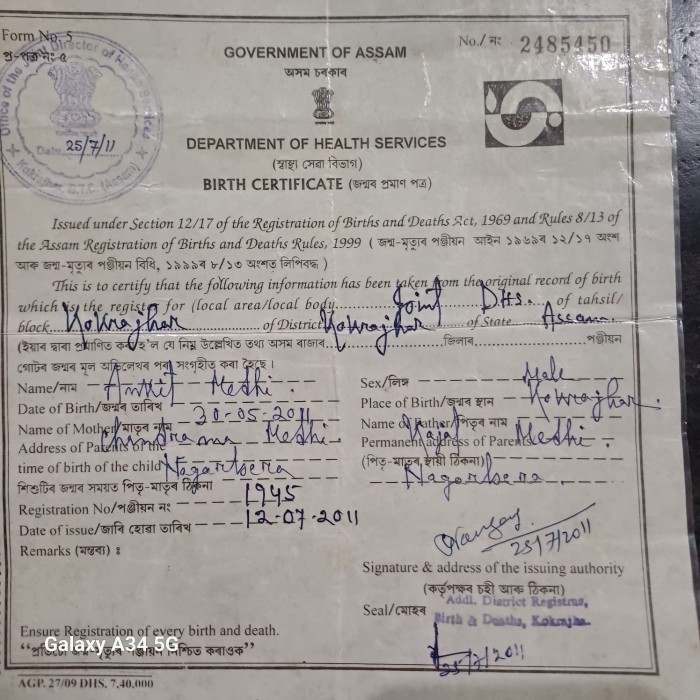 Form No. 5
প্ৰ-পত্ৰ নং ৫
Office of the Joint Director of Health Services
Date 25/7/11
Kokrajhar, B.T.C. (Assam)
No./নং 2485450
GOVERNMENT OF ASSAM
অসম চৰকাৰ
DEPARTMENT OF HEALTH SERVICES
(স্বাস্থ্য সেৱা বিভাগ)
BIRTH CERTIFICATE (জন্মৰ প্ৰমাণ পত্ৰ)
Issued under Section 12/17 of the Registration of Births and Deaths Act, 1969 and Rules 8/13 of
the Assam Registration of Births and Deaths Rules, 1999 ( জন্ম-মৃত্যুৰ পঞ্জীয়ন আইন ১৯৬৯ৰ ১২/১৭ অংশ
আৰু জন্ম-মৃত্যুৰ পঞ্জীয়ন বিধি, ১৯৯৯ৰ ৮/১৩ অংশত লিপিবদ্ধ )
This is to certify that the following information has been taken from the original record of birth
which is the register for (local area/local body Joint DHS. of tahsil/
block Kokrajhar of District Kokrajhar of State Assam
(ইয়াৰ দ্বাৰা প্ৰমাণিত কৰা হ'ল যে নিম্ন উল্লেখিত তথ্য অসম ৰাজ্যৰ জিলাৰ পঞ্জীয়ন
গোটৰ জন্মৰ মূল অভিলেখৰ পৰা সংগৃহীত কৰা হৈছে।
Name/নাম Ankit Medhi.
Sex/লিঙ্গ Male
Date of Birth/জন্মৰ তাৰিখ 30-05-2011
Place of Birth/জন্মৰ স্থান Kokrajhar.
Name of Mother/মাতৃৰ নাম Chandrama Medhi.
Name of Father/পিতৃৰ নাম Medhi.
Address of Parents of the
time of birth of the child Nagarbera
শিশুটিৰ জন্মৰ সময়ত পিতৃ-মাতৃৰ ঠিকনা
Permanent address of Parents
(পিতৃ-মাতৃৰ স্থায়ী ঠিকনা) Nagarbera.
Registration No/পঞ্জীয়ন নং 1945
Date of issue/জাৰি হোৱা তাৰিখ 12-07-2011
Remarks (মন্তব্য) :
25/7/2011
Signature & address of the issuing authority
(কৰ্তৃপক্ষৰ চহী আৰু ঠিকনা)
Seal/মোহৰ
Addl. District Registrar,
Birth & Deaths, Kokrajhar
25/7/2011
Ensure Registration of every birth and death.
"প্ৰতিটো জন্ম-মৃত্যুৰ পঞ্জীয়ন নিশ্চিত কৰাওক"
Galaxy A34 5G
AGP. 27/09 DHS. 7,40,000